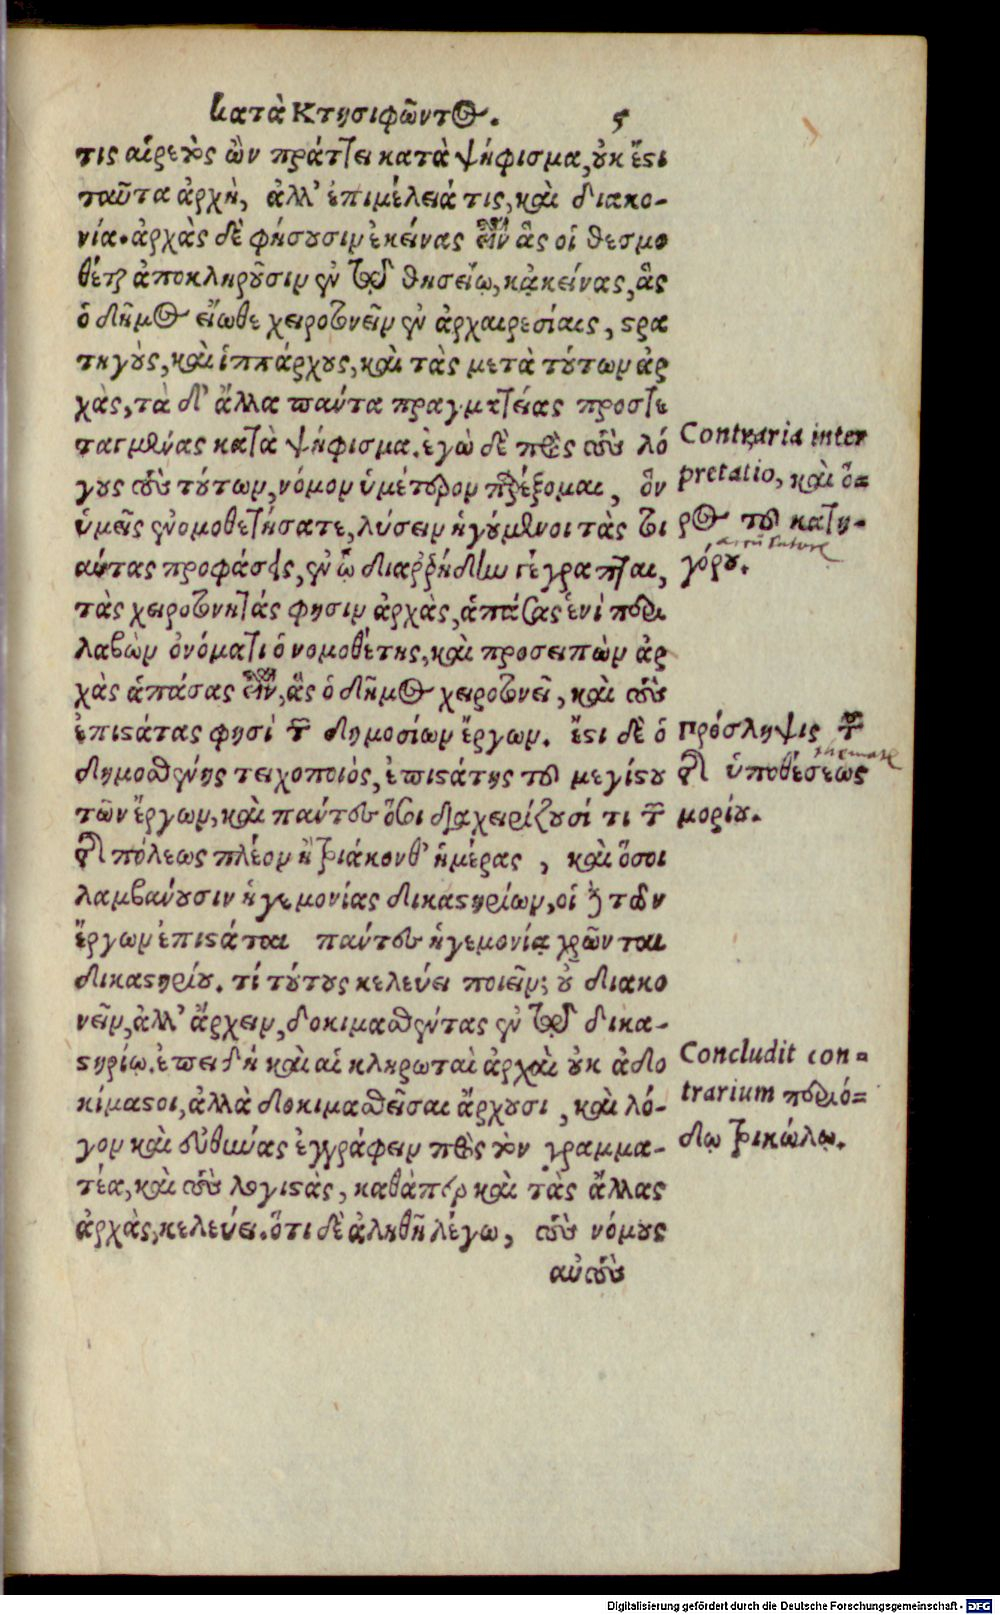 κατὰ Κτησιφῶντος. 5
τις αἱρετὸς ὢν πράττει κατὰ ψήφισμα, οὐκ ἔστι
ταῦτα ἀρχὴ, ἀλλ' ἐπιμέλειά τις, καὶ διακο-
νία. ἀρχὰς δὲ φήσουσιν ἐκείνας εἶναι ἃς οἱ θεσμο
θέται ἀποκληροῦσιν ἐν τῷ θησείῳ, κᾀκείνας, ἃς
ὁ δῆμος εἴωθε χειροτονεῖν ἐν ἀρχαιρεσίαις, στρα
τηγοὺς, καὶ ἱππάρχους, καὶ τὰς μετὰ τούτων ἀρ
χὰς, τὰ δ' ἄλλα πάντα πραγματείας προστε
ταγμένας κατὰ ψήφισμα. ἐγὼ δὲ πρὸς τοὺς λό
γους τοὺς τούτων, νόμον ὑμέτερον παρέξομαι, ὃν
ὑμεῖς ἐνομοθετήσατε, λύσειν ἡγούμενοι τὰς τοι
αύτας προφάσεις, ἐν ᾧ διαρρήδην γέγραπται,
τὰς χειροτονητάς φησιν ἀρχὰς, ἁπάσας ἑνὶ περι
λαβὼν ὀνόματι ὁ νομοθέτης, καὶ προσειπὼν ἀρ
χὰς ἁπάσας εἶναι, ἃς ὁ δῆμος χειροτονεῖ, καὶ τοὺς
ἐπιστάτας φησὶ τῶν δημοσίων ἔργων. ἔστι δὲ ὁ
δημοσθένης τειχοποιὸς, ἐπιστάτης τοῦ μεγίστου
τῶν ἔργων, καὶ πάντες ὅσοι διαχειρίζουσί τι τῶν
τῆς πόλεως πλέον ἢ τριάκονθ' ἡμέρας, καὶ ὅσοι
λαμβάνουσιν ἡγεμονίας δικαστηρίων, οἱ δὲ τῶν
ἔργων ἐπιστάται πάντες ἡγεμονίᾳ χρῶνται
δικαστηρίου. τί τούτους κελεύει ποιεῖν; οὐ διακο
νεῖν, ἀλλ' ἄρχειν, δοκιμασθέντας ἐν τῷ δικα-
στηρίῳ. ἐπειδὴ καὶ αἱ κληρωταὶ ἀρχαὶ οὐκ ἀδο
κίμαστοι, ἀλλὰ δοκιμασθεῖσαι ἄρχουσι, καὶ λό-
γον καὶ εὐθύνας ἐγγράφειν πρὸς τὸν γραμμα-
τέα, καὶ τοὺς λογιστὰς, καθάπερ καὶ τὰς ἄλλας
ἀρχὰς, κελεύει. ὅτι δὲ ἀληθῆ λέγω, τοὺς νόμους
αὐτοὺς
Contraria inter
pretatio, καὶ ὅ-
ρος τοῦ κατη-
γόρου.
πρόσληψις τῶν
τῆς ὑποθέσεως
μορίου.
Concludit con-
trarium περιό-
δῳ τρικώλῳ.
Digitalisierung gefördert durch die Deutsche Forschungsgemeinschaft - DFG